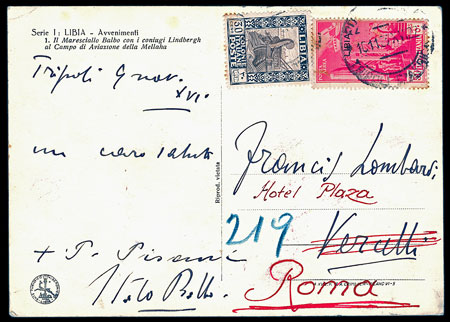 Serie I: LIBIA - Avvenimenti
1. Il Maresciallo Balbo con i coniugi Lindbergh
al Campo di Aviazione della Mellaha
Tripoli 9 nov.
XVI
un caro saluto
+ P. Pisani
Italo Balbo
Riprod. vietata
LIBIA
POSTE
Francis Lombardi
Hotel Plaza
219
Vercelli
Roma